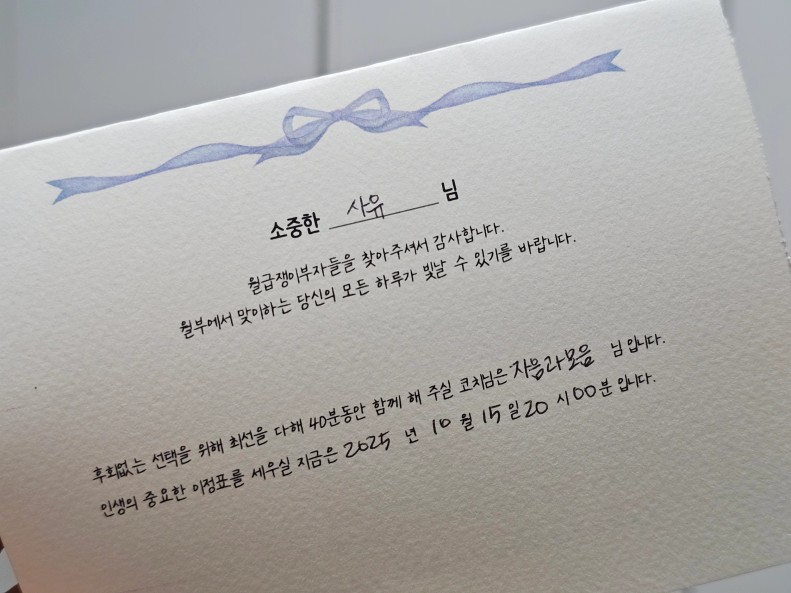 소중한 사유 님
월급쟁이부자들을 찾아주셔서 감사합니다.
월부에서 맞이하는 당신의 모든 하루가 빛날 수 있기를 바랍니다.
후회없는 선택을 위해 최선을 다해 40분동안 함께 해 주실 코치님은 자음과모음 님 입니다.
인생의 중요한 이정표를 세우실 지금은 2025 년 10 월 15 일 20 시 00 분 입니다.